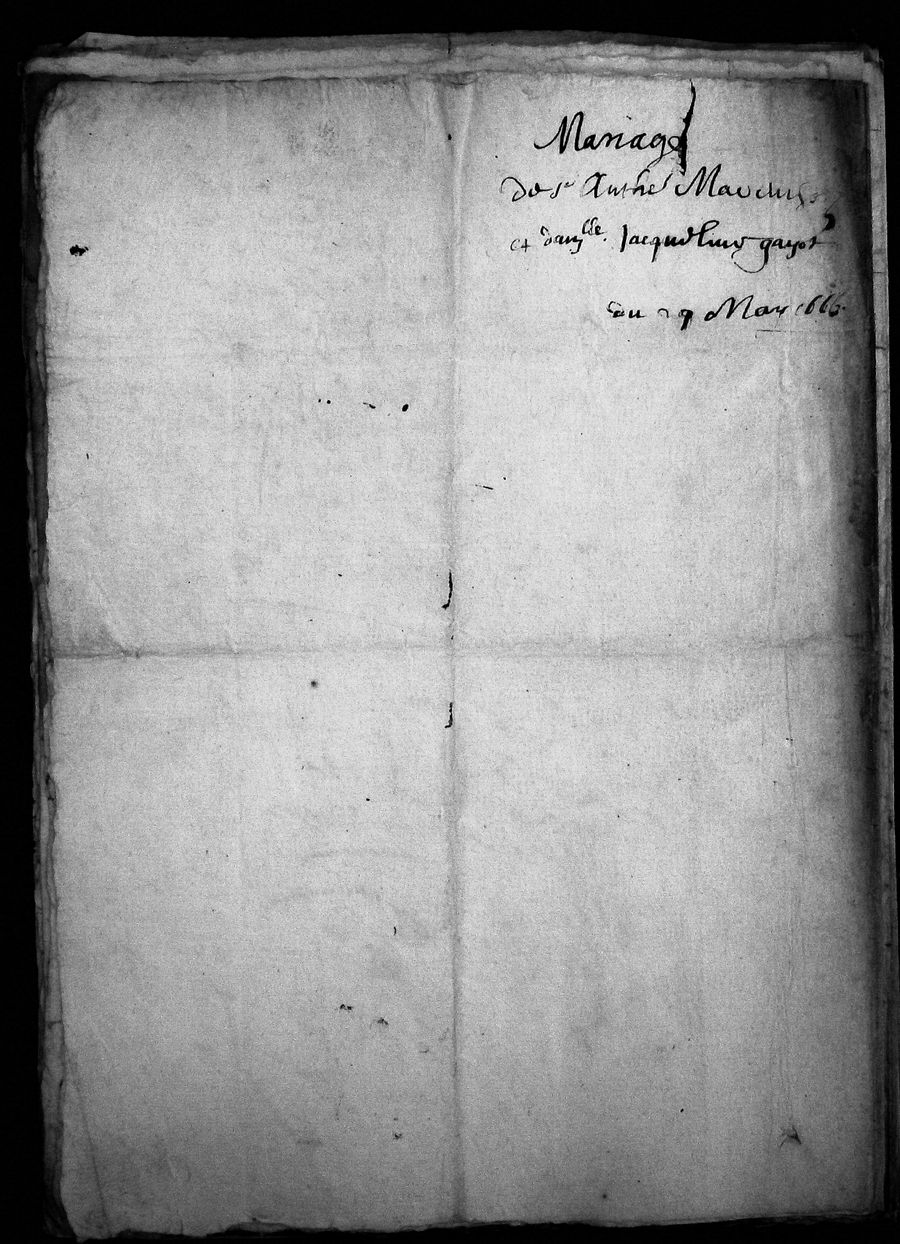 Mariage
de sr Anthe
et damlle. Jacqueline gayot
du 29 May 1666.